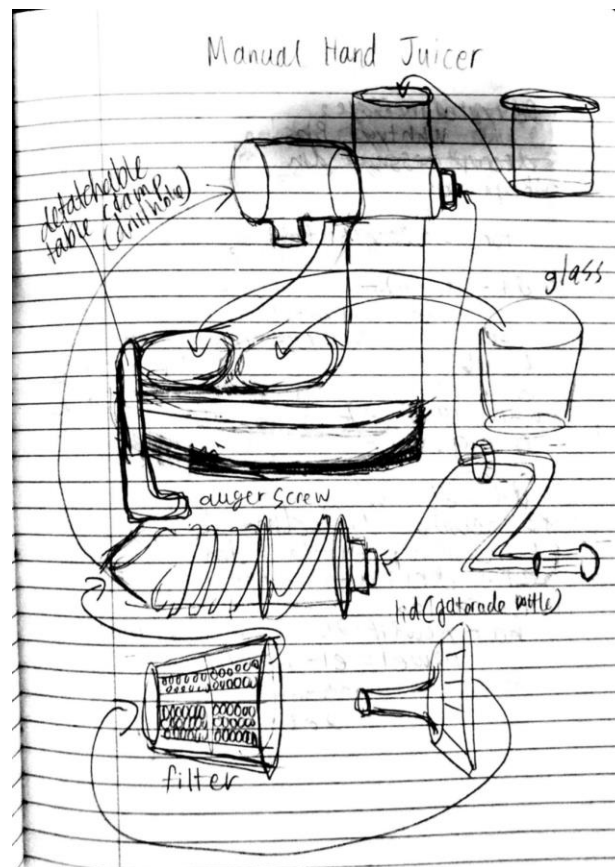 Manual Hand Juicer
detatchable
table clamp
glass
auger screw
lid (gatorade bottle)
filter